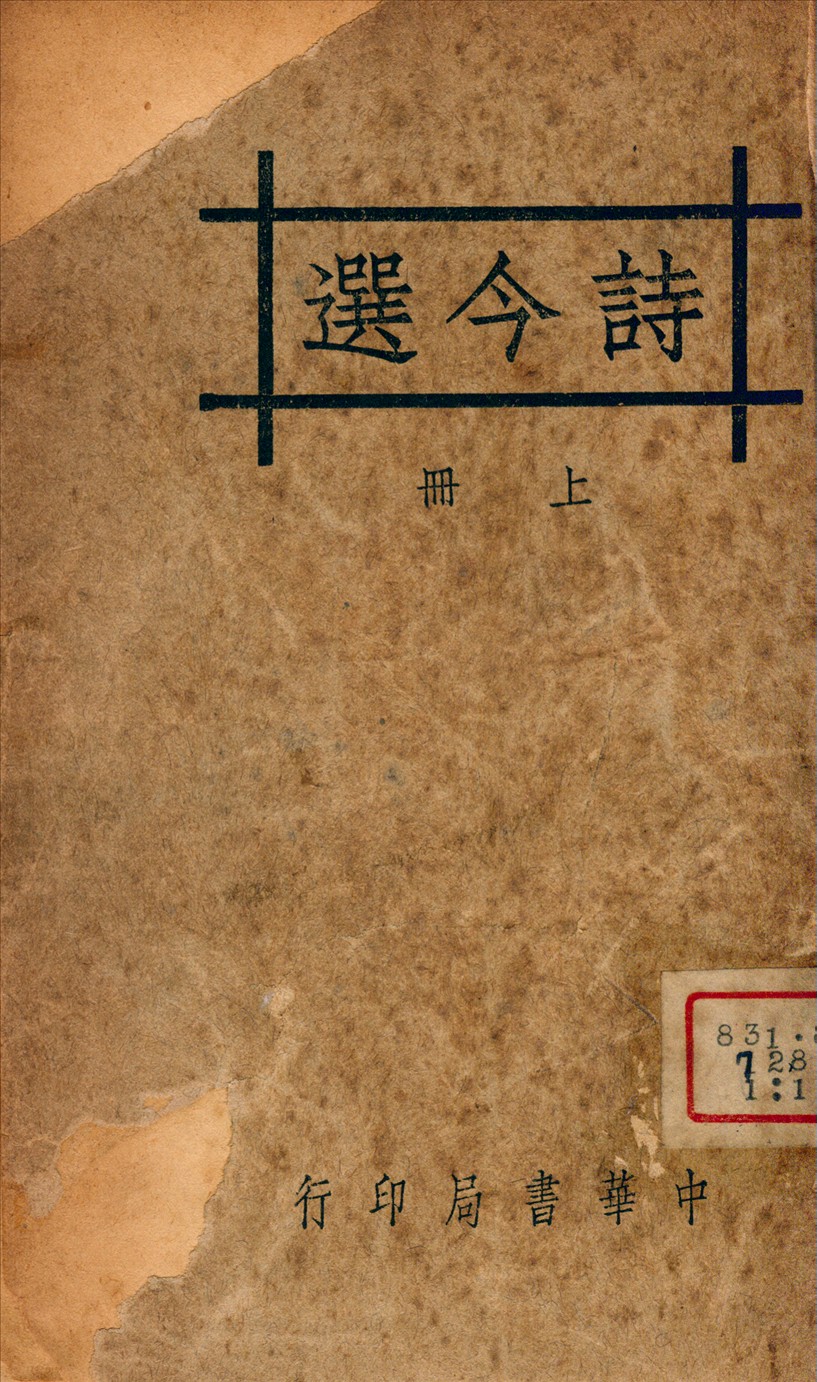 詩今選
上冊
831·
728
1:1
中華書局印行